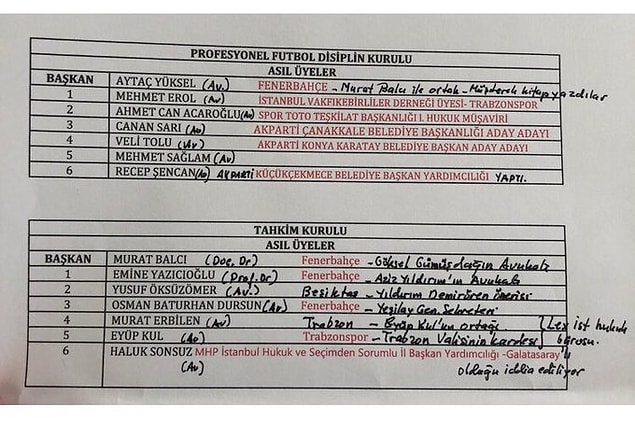 PROFESYONEL FUTBOL DİSİPLİN KURULU
ASIL ÜYELER
BAŞKAN AYTAÇ YÜKSEL (Av.) FENERBAHÇE - Murat Balcı ile ortak - Müşterek kitap yazdılar
1 MEHMET EROL (Av) İSTANBUL VAKFIKEBİRLİLER DERNEĞİ ÜYESİ- TRABZONSPOR
2 AHMET CAN ACAROĞLU (Av) SPOR TOTO TEŞKİLAT BAŞKANLIĞI I. HUKUK MÜŞAVİRİ
3 CANAN SARI (Av) AKPARTİ ÇANAKKALE BELEDİYE BAŞKANLIĞI ADAY ADAYI
4 VELİ TOLU (Av) AKPARTİ KONYA KARATAY BELEDİYE BAŞKAN ADAY ADAYI
5 MEHMET SAĞLAM (Av)
6 RECEP ŞENCAN (Av) AKPARTİ KÜÇÜKÇEKMECE BELEDİYE BAŞKAN YARDIMCILIĞI YAPTI.
TAHKİM KURULU
ASIL ÜYELER
BAŞKAN MURAT BALCI (Doç. Dr) Fenerbahçe - Göksel Gümüşdağın Avukatı
1 EMİNE YAZICIOĞLU (Prof. Dr) Fenerbahçe - Aziz Yıldırım'ın Avukatı
2 YUSUF ÖKSÜZÖMER (Av.) Beşiktaş - Yıldırım Demirören önerisi
3 OSMAN BATURHAN DURSUN (Av) Fenerbahçe - Yeşilay Gen. Sekreteri
4 MURAT ERBİLEN (Av) Trabzon - Eyüp Kul'un ortağı } Lex ist hukuk
5 EYÜP KUL (Av) Trabzonspor - Trabzon Valisinin kardeşi } bürosu.
6 HALUK SONSUZ MHP İstanbul Hukuk ve Seçimden Sorumlu İl Başkan Yardımcılığı -Galatasaray'lı
(Av) olduğu iddia ediliyor